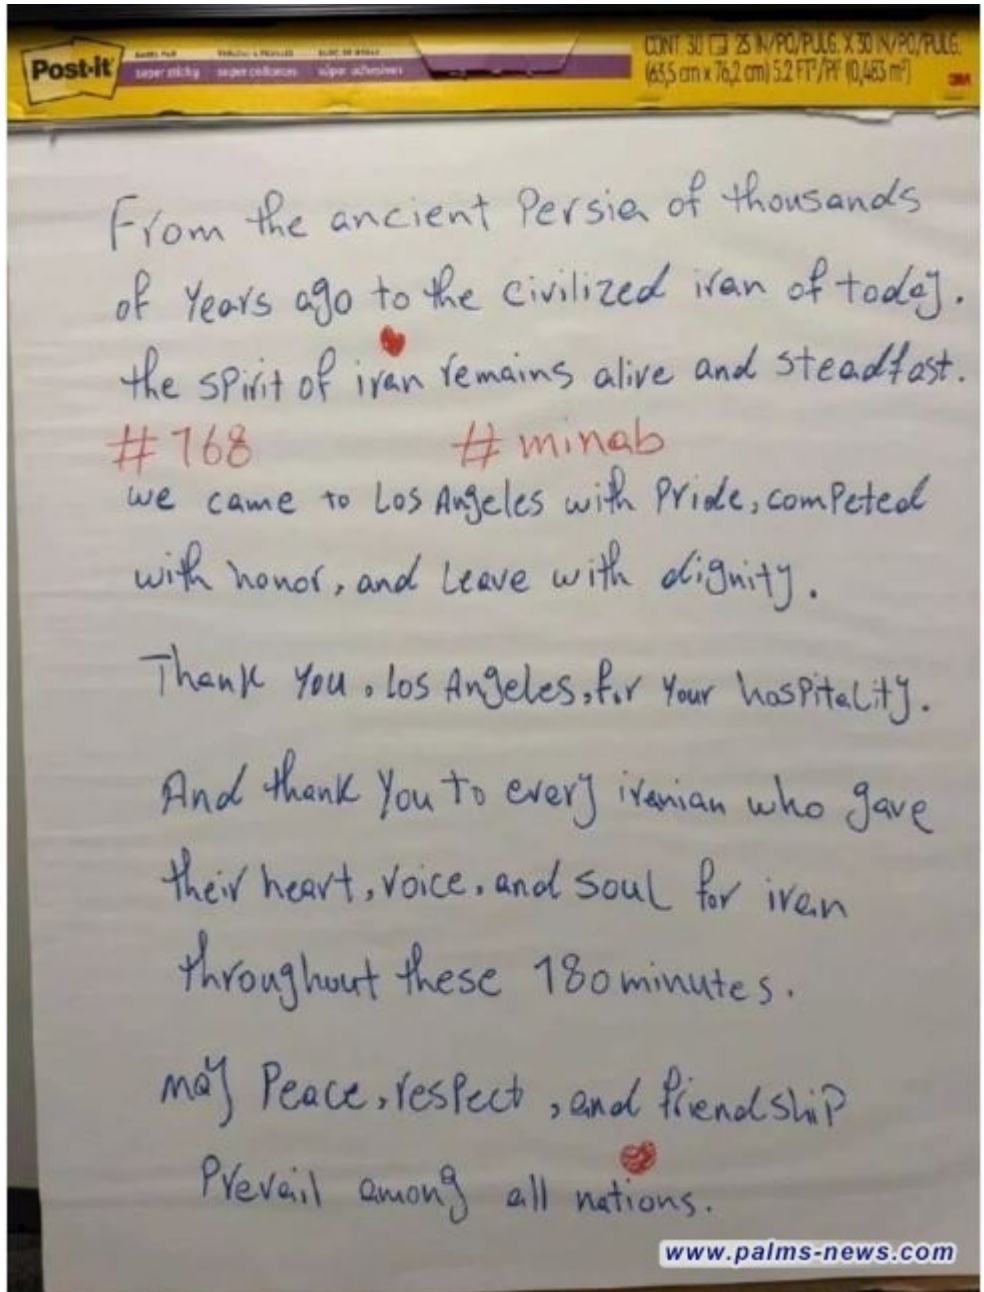 Post-it
super sticky
super collantes
súper adhesivas
CONT. 30 25 IN/PO/PULG. X 30 IN/PO/PULG.
(63,5 cm x 76,2 cm) 5.2 FT²/PI² (0,483 m²)
3M
From the ancient Persia of thousands
of Years ago to the civilized iran of today.
the spirit of iran remains alive and steadfast.
#168 #minab
we came to Los Angeles with Pride, competed
with honor, and Leave with dignity.
Thank You, Los Angeles, for Your hospitality.
And thank You to every iranian who gave
their heart, voice, and soul for iran
throughout these 180 minutes.
may Peace, respect, and friendship
Prevail among all nations.
www.palms-news.com